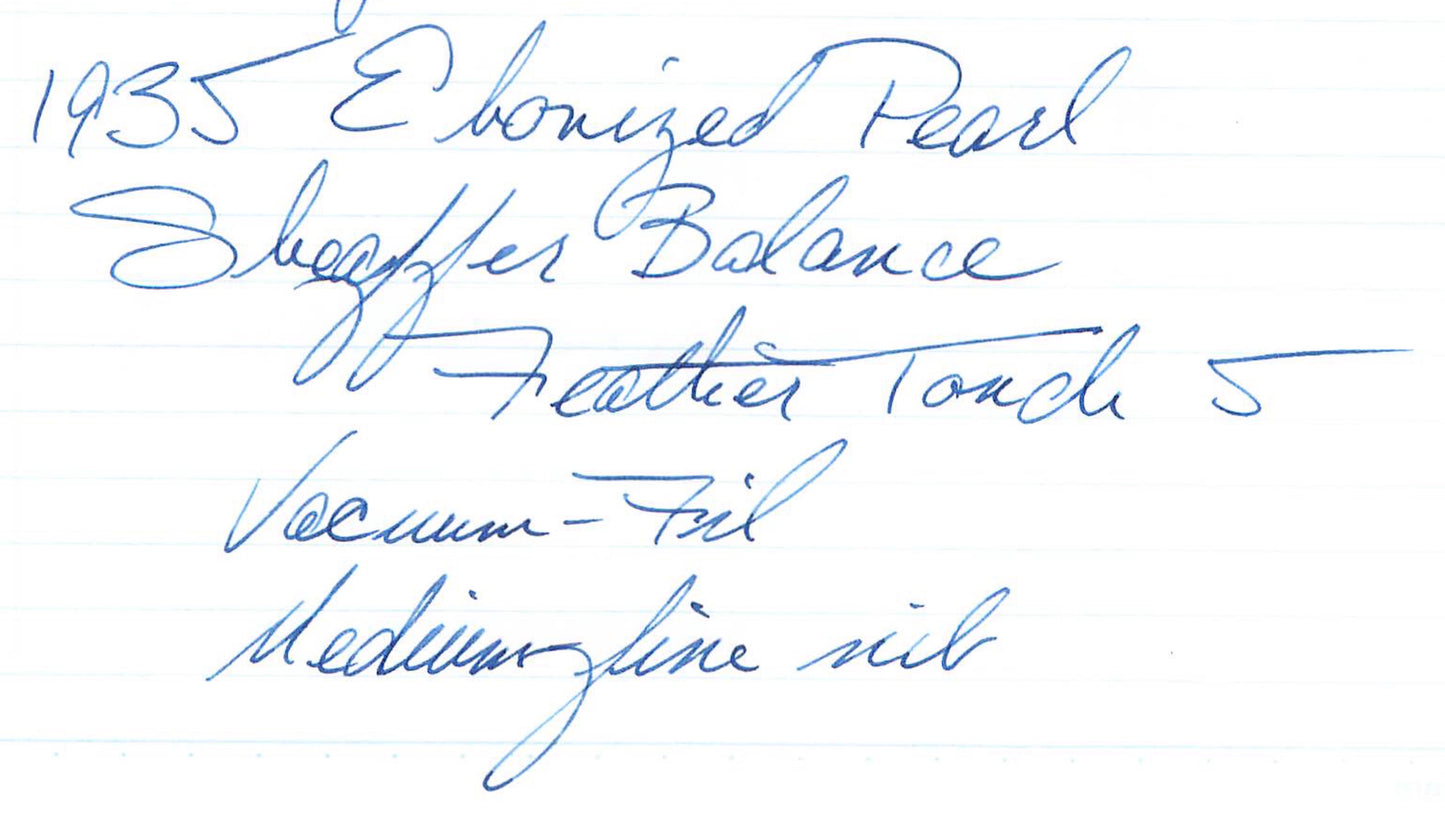 1935 Ebonized Pearl
Sheaffer Balance
Feather Touch 5
Vacuum-Fil
Medium-fine nib